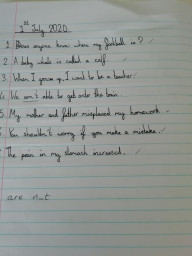 1st July 2020
1. Does anyone know where my football is?
2. A baby whale is called a calf.
3. When I grow up, I want to be a teacher.
4. We aren't able to get onto the train.
5. My mother and father misplaced my homework.
6. You shouldn't worry if you make a mistake.
7. The pain in my stomach increased.
are not